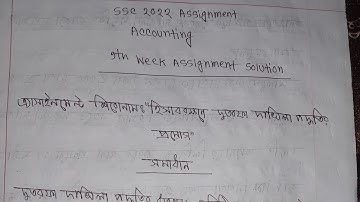 SSC 2022 Assignment
Accounting
9th Week Assignment Solution
এ্যাসাইনমেন্ট শিরোনামঃ "হিসাবরক্ষণে দুতরফা দাখিলা পদ্ধতির
প্রয়োগ"
সমাধান
দুতরফা দাখিলা পদ্ধতির